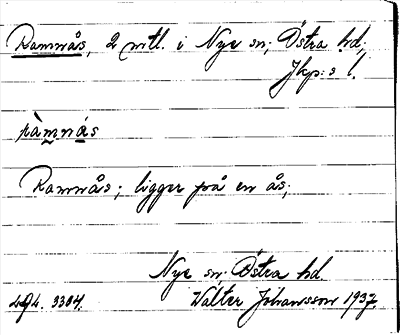 Ramnås, 2 mtl. i Nye sn; Östra hd;
Jkp:s l.
ràmnás
Ramnås; ligger på en ås;
Nye sn; Östra hd.
Walter Johansson 1937